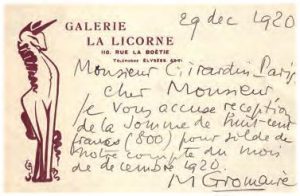 29 dec 1920
GALERIE
LA LICORNE
110, RUE LA BOËTIE
TÉLÉPHONE ÉLYSÉES
Monsieur Girardin Paris
cher Monsieur
je vous accuse reception
de la somme de huit cent
francs (800) pour solde de
notre compte du mois
de decembre 1920.
M Gromaire